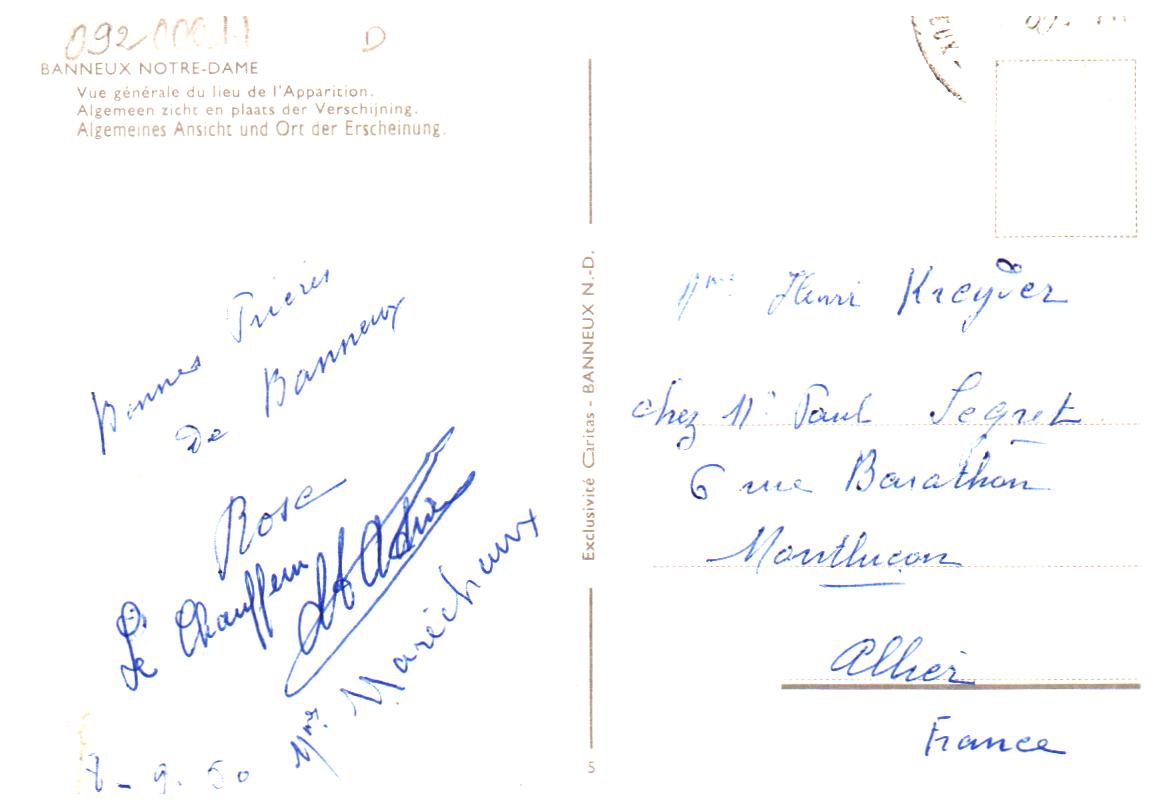 D
BANNEUX NOTRE-DAME
Vue générale du lieu de l'Apparition.
Algemeen zicht en plaats der Verschijning.
Algemeines Ansicht und Ort der Erscheinung.
Bonnes Prières
de Banneux
Rose
Le Chauffeur
Mmes Maréchaux
8-9.50
Exclusivité Caritas - BANNEUX N.-D.
5
EUX-
Mme Henri Kreyder
chez Mr Paul Segret
6 rue Barathon
Montluçon
Allier
France